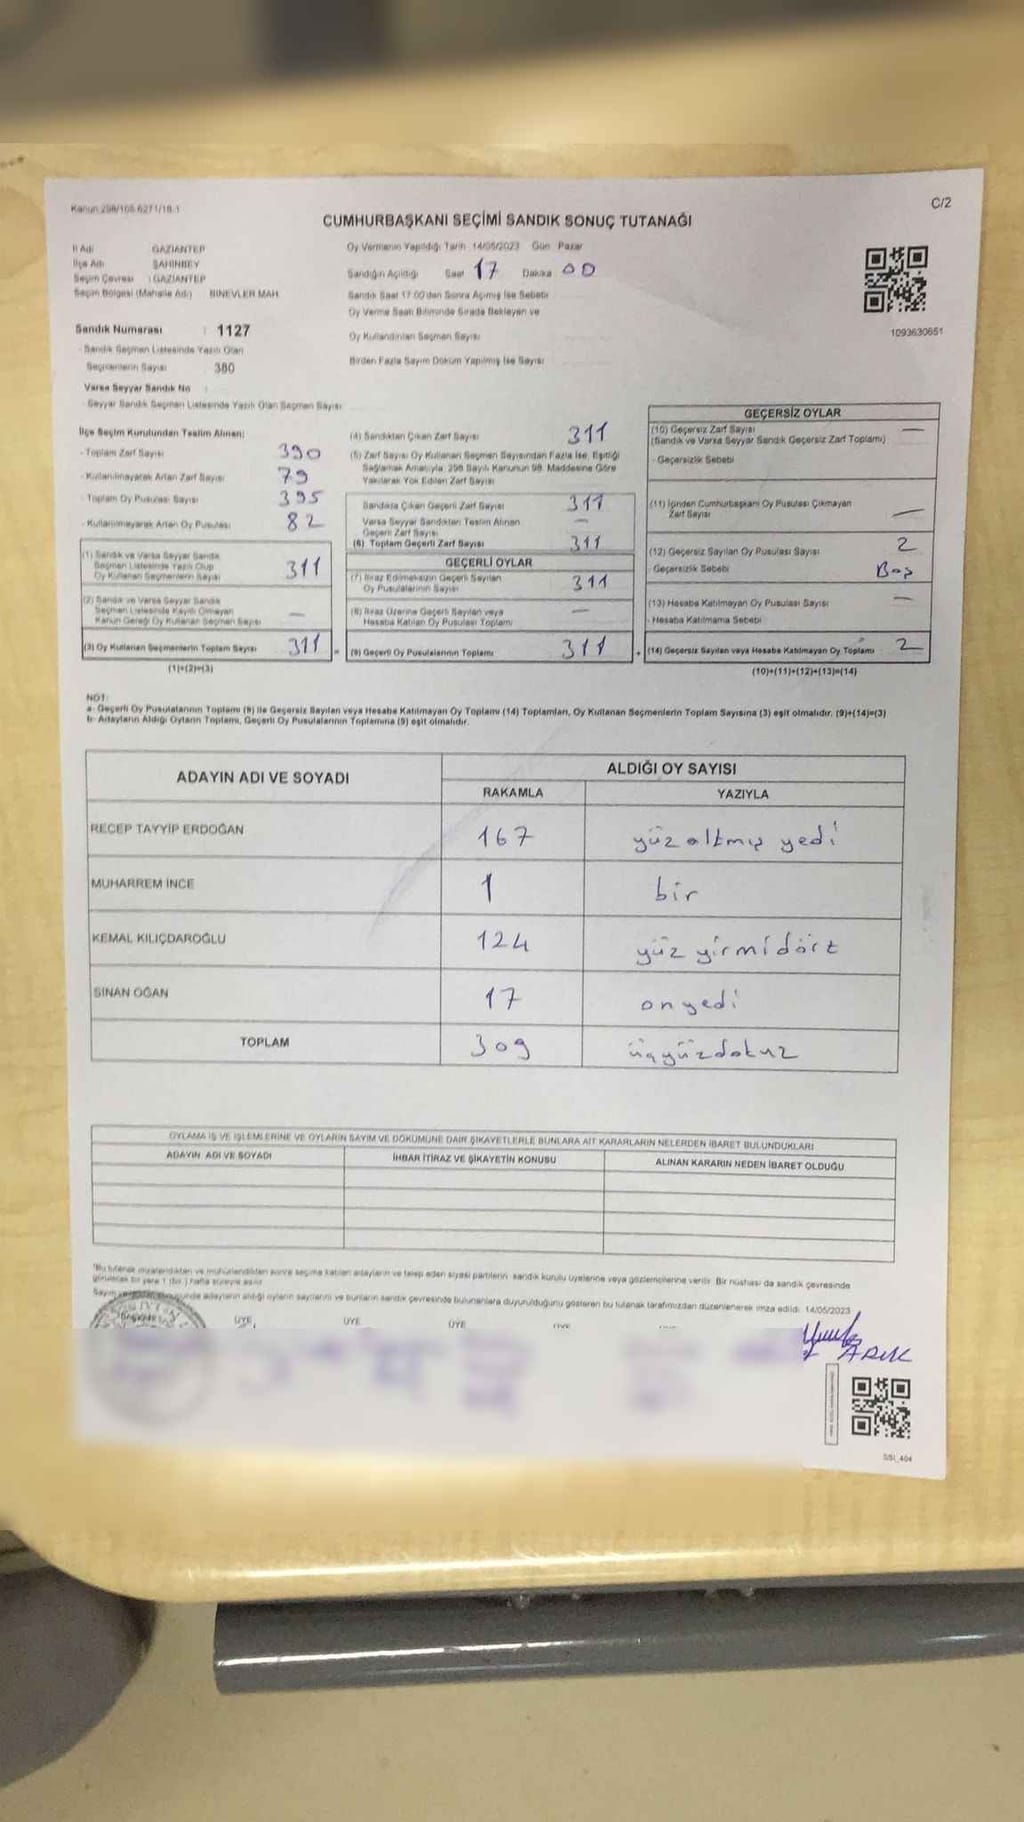 Kanun:298/105.6271/18-1
C/2
CUMHURBAŞKANI SEÇİMİ SANDIK SONUÇ TUTANAĞI
İl Adı : GAZİANTEP
İlçe Adı : ŞAHİNBEY
Seçim Çevresi : GAZİANTEP
Seçim Bölgesi (Mahalle Adı) BİNEVLER MAH.
Sandık Numarası : 1127
- Sandık Seçmen Listesinde Yazılı Olan
Seçmenlerin Sayısı 380
Varsa Seyyar Sandık No :
- Seyyar Sandık Seçmen Listesinde Yazılı Olan Seçmen Sayısı
Oy Vermenin Yapıldığı Tarih 14/05/2023 Gün Pazar
Sandığın Açıldığı Saat 17 Dakika 00
Sandık Saat 17.00'den Sonra Açılmış İse Sebebi
Oy Verme Saati Bitiminde Sırada Bekleyen ve
Oy Kullandırılan Seçmen Sayısı
Birden Fazla Sayım Döküm Yapılmış İse Sayısı
1093630651
İlçe Seçim Kurulundan Teslim Alınan;
- Toplam Zarf Sayısı 390
- Kullanılmayarak Artan Zarf Sayısı 79
- Toplam Oy Pusulası Sayısı 395
- Kullanılmayarak Artan Oy Pusulası 82
(1) Sandık ve Varsa Seyyar Sandık
Seçmen Listesinde Yazılı Olup
Oy Kullanan Seçmenlerin Sayısı 311
(2) Sandık ve Varsa Seyyar Sandık
Seçmen Listesinde Kayıtlı Olmayan
Kanun Gereği Oy Kullanan Seçmen Sayısı —
(3) Oy Kullanan Seçmenlerin Toplam Sayısı 311 =
(1)+(2)=(3)
(4) Sandıktan Çıkan Zarf Sayısı 311
(5) Zarf Sayısı Oy Kullanan Seçmen Sayısından Fazla İse, Eşitliği
Sağlamak Amacıyla 298 Sayılı Kanunun 98. Maddesine Göre
Yakılarak Yok Edilen Zarf Sayısı
Sandıkta Çıkan Geçerli Zarf Sayısı 311
Varsa Seyyar Sandıktan Teslim Alınan
Geçerli Zarf Sayısı —
(6) Toplam Geçerli Zarf Sayısı 311
GEÇERLİ OYLAR
(7) İtiraz Edilmeksizin Geçerli Sayılan
Oy Pusulalarının Sayısı 311
(8) İtiraz Üzerine Geçerli Sayılan veya
Hesaba Katılan Oy Pusulası Toplamı —
(9) Geçerli Oy Pusulalarının Toplamı 311 +
GEÇERSİZ OYLAR
(10) Geçersiz Zarf Sayısı —
(Sandık ve Varsa Seyyar Sandık Geçersiz Zarf Toplamı)
- Geçersizlik Sebebi
(11) İçinden Cumhurbaşkanı Oy Pusulası Çıkmayan
Zarf Sayısı —
(12) Geçersiz Sayılan Oy Pusulası Sayısı 2
- Geçersizlik Sebebi Boş
(13) Hesaba Katılmayan Oy Pusulası Sayısı —
- Hesaba Katılmama Sebebi
(14) Geçersiz Sayılan veya Hesaba Katılmayan Oy Toplamı 2
(10)+(11)+(12)+(13)=(14)
NOT:
a- Geçerli Oy Pusulalarının Toplamı (9) ile Geçersiz Sayılan veya Hesaba Katılmayan Oy Toplamı (14) Toplamları, Oy Kullanan Seçmenlerin Toplam Sayısına (3) eşit olmalıdır. (9)+(14)=(3)
b- Adayların Aldığı Oyların Toplamı, Geçerli Oy Pusulalarının Toplamına (9) eşit olmalıdır.
ADAYIN ADI VE SOYADI
ALDIĞI OY SAYISI
RAKAMLA
YAZIYLA
RECEP TAYYİP ERDOĞAN 167 yüzaltmış yedi
MUHARREM İNCE 1 bir
KEMAL KILIÇDAROĞLU 124 yüz yirmidört
SİNAN OĞAN 17 onyedi
TOPLAM 309 üçyüzdokuz
OYLAMA İŞ VE İŞLEMLERİNE VE OYLARIN SAYIM VE DÖKÜMÜNE DAİR ŞİKAYETLERLE BUNLARA AİT KARARLARIN NELERDEN İBARET BULUNDUKLARI
ADAYIN ADI VE SOYADI
İHBAR İTİRAZ VE ŞİKAYETİN KONUSU
ALINAN KARARIN NEDEN İBARET OLDUĞU
*Bu tutanak imzalandıktan ve mühürlendikten sonra seçime katılan adayların ve talep eden siyasi partilerin sandık kurulu üyelerine veya gözlemcilerine verilir. Bir nüshası da sandık çevresinde
görülecek bir yere 1 (bir) hafta süreyle asılır.
adayların aldığı oyların sayılarını ve bunların sandık çevresinde bulunanlara duyurulduğunu gösteren bu tutanak tarafımızdan düzenlenerek imza edildi. 14/05/2023
ÜYE ÜYE ÜYE ÜYE
ARIK
SSİ_404